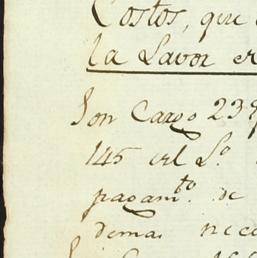 Costos, que
la Lavor e
Son Cargo 239
145 el So
pagamto. de
demas nece